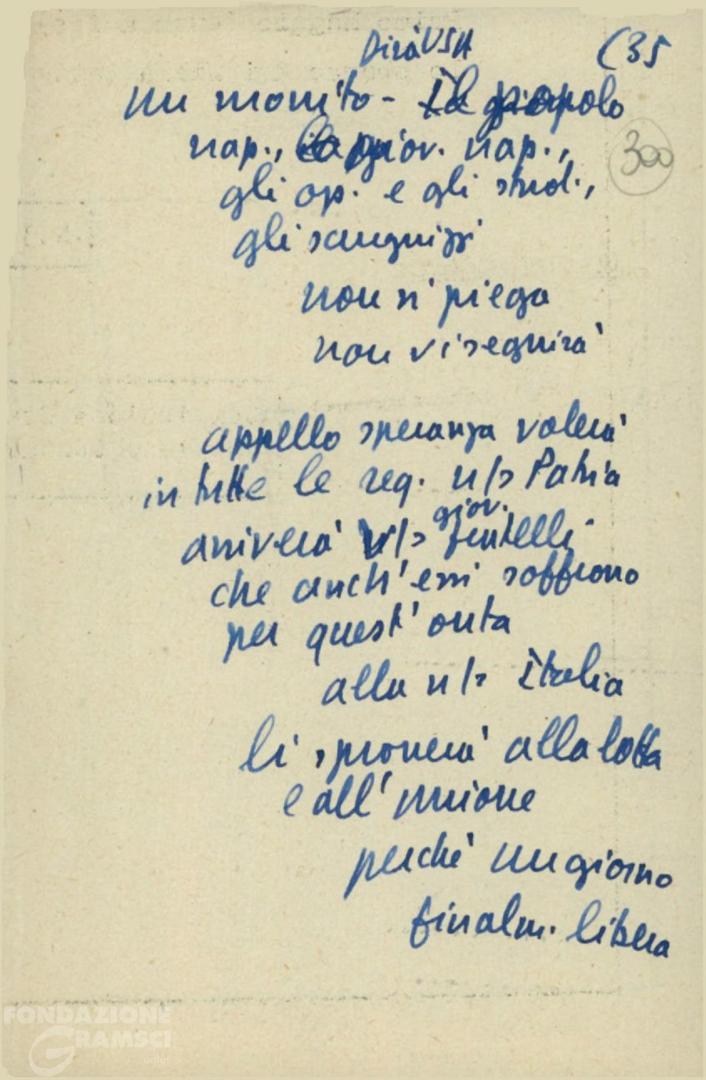 Dirà USA (35
un monito - il popolo
300
nap., la giov. nap.,
gli op. e gli stud.,
gli scugnizzi
non si piega
non vi seguirà
appello speranza volerà
in tutte le reg. n/s Patria
giov.
arriverà n/s fratelli
che anch'essi soffrono
per quest'onta
alla n/s Italia
li spronerà alla lotta
e all'unione
perchè un giorno
finalm. libera
FONDAZIONE
GRAMSCI